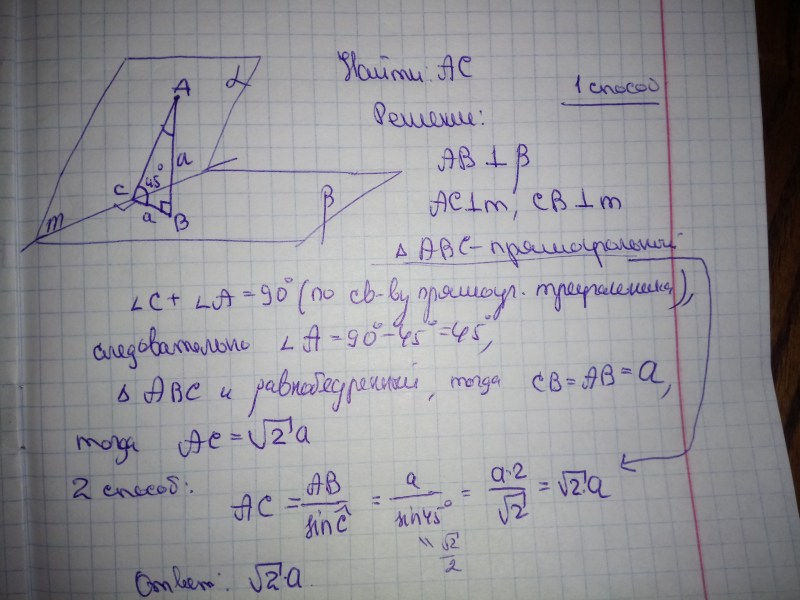 Найти: AC
1 способ
Решение:
AB ⊥ β
AC ⊥ m, CB ⊥ m
Δ ABC - прямоугольный
A
α
a
C 45°
a
B
m
β
∠C + ∠A = 90° (по св-ву прямоуг. треугольника),
следовательно ∠A = 90° - 45° = 45°,
Δ ABC и равнобедренный, тогда CB = AB = a,
тогда AC = √2 a
2 способ: AC = AB/sin Ĉ = a/sin 45° = a·2/√2 = √2·a
" √2/2
Ответ: √2·a.